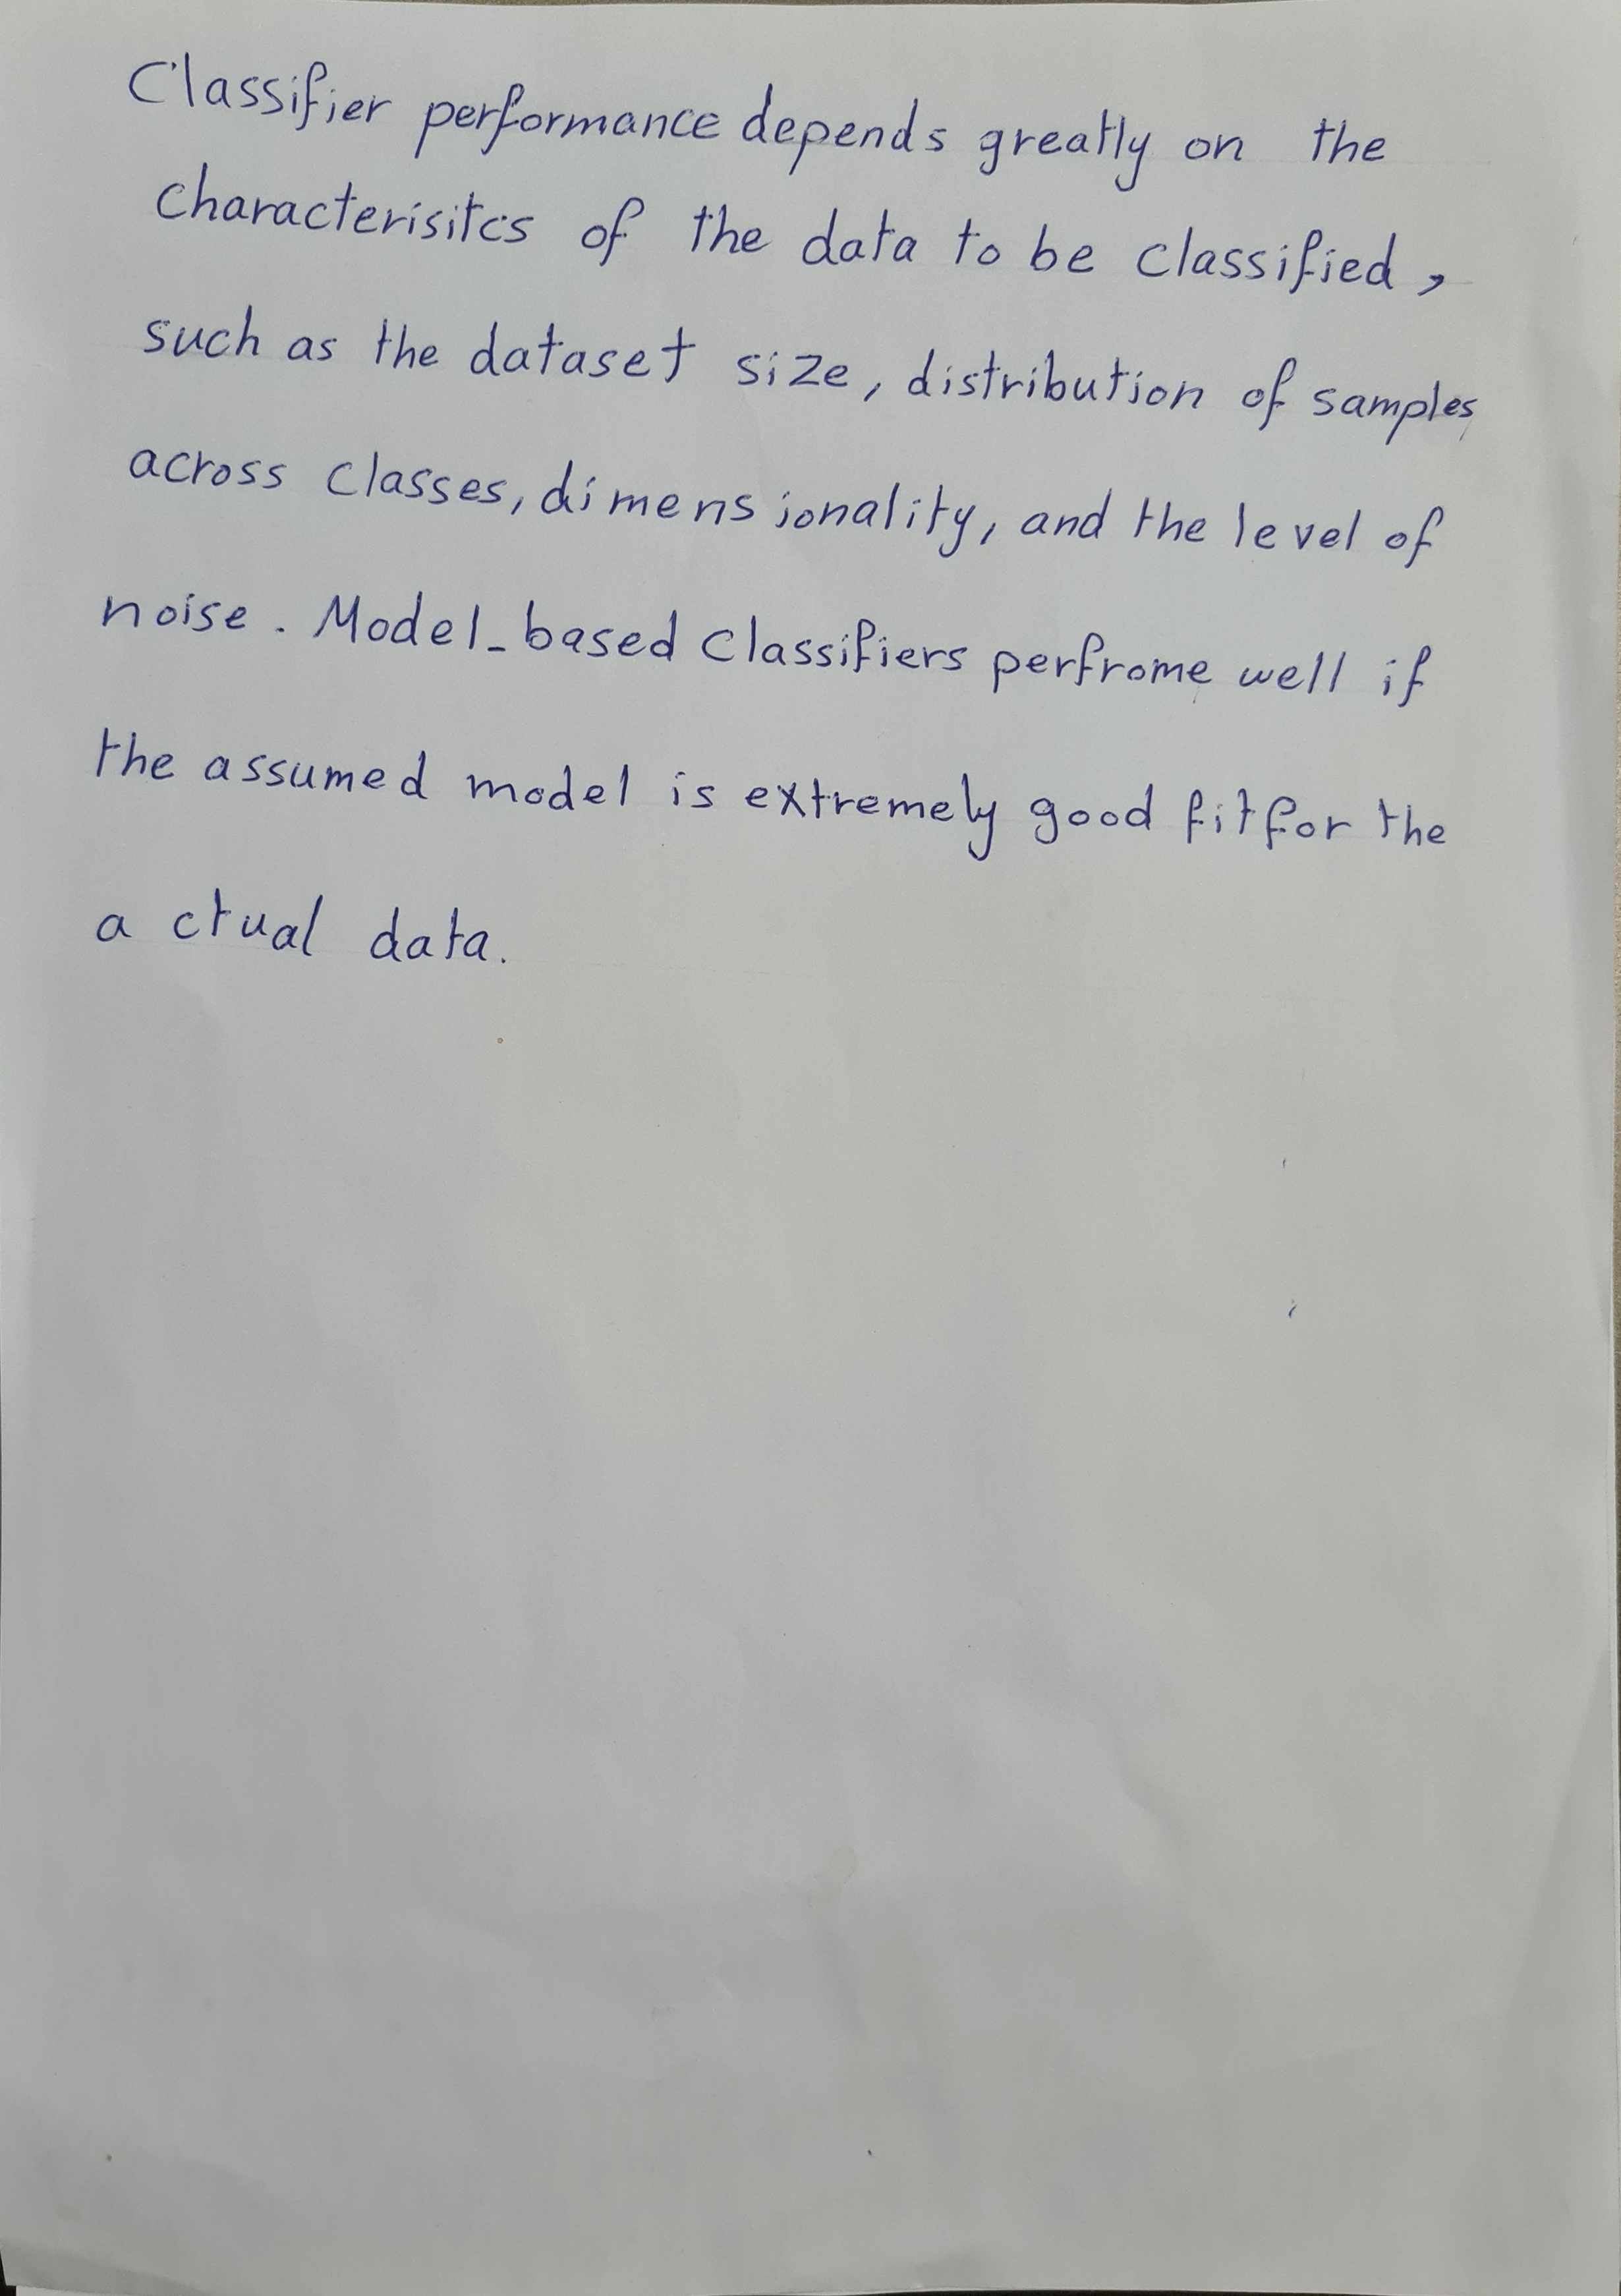 Classifier performance depends greatly on the
characterisitcs of the data to be classified,
such as the dataset size, distribution of samples
across classes, dimensionality, and the level of
noise. Model-based classifiers perfrome well if
the assumed model is extremely good fit for the
actual data.